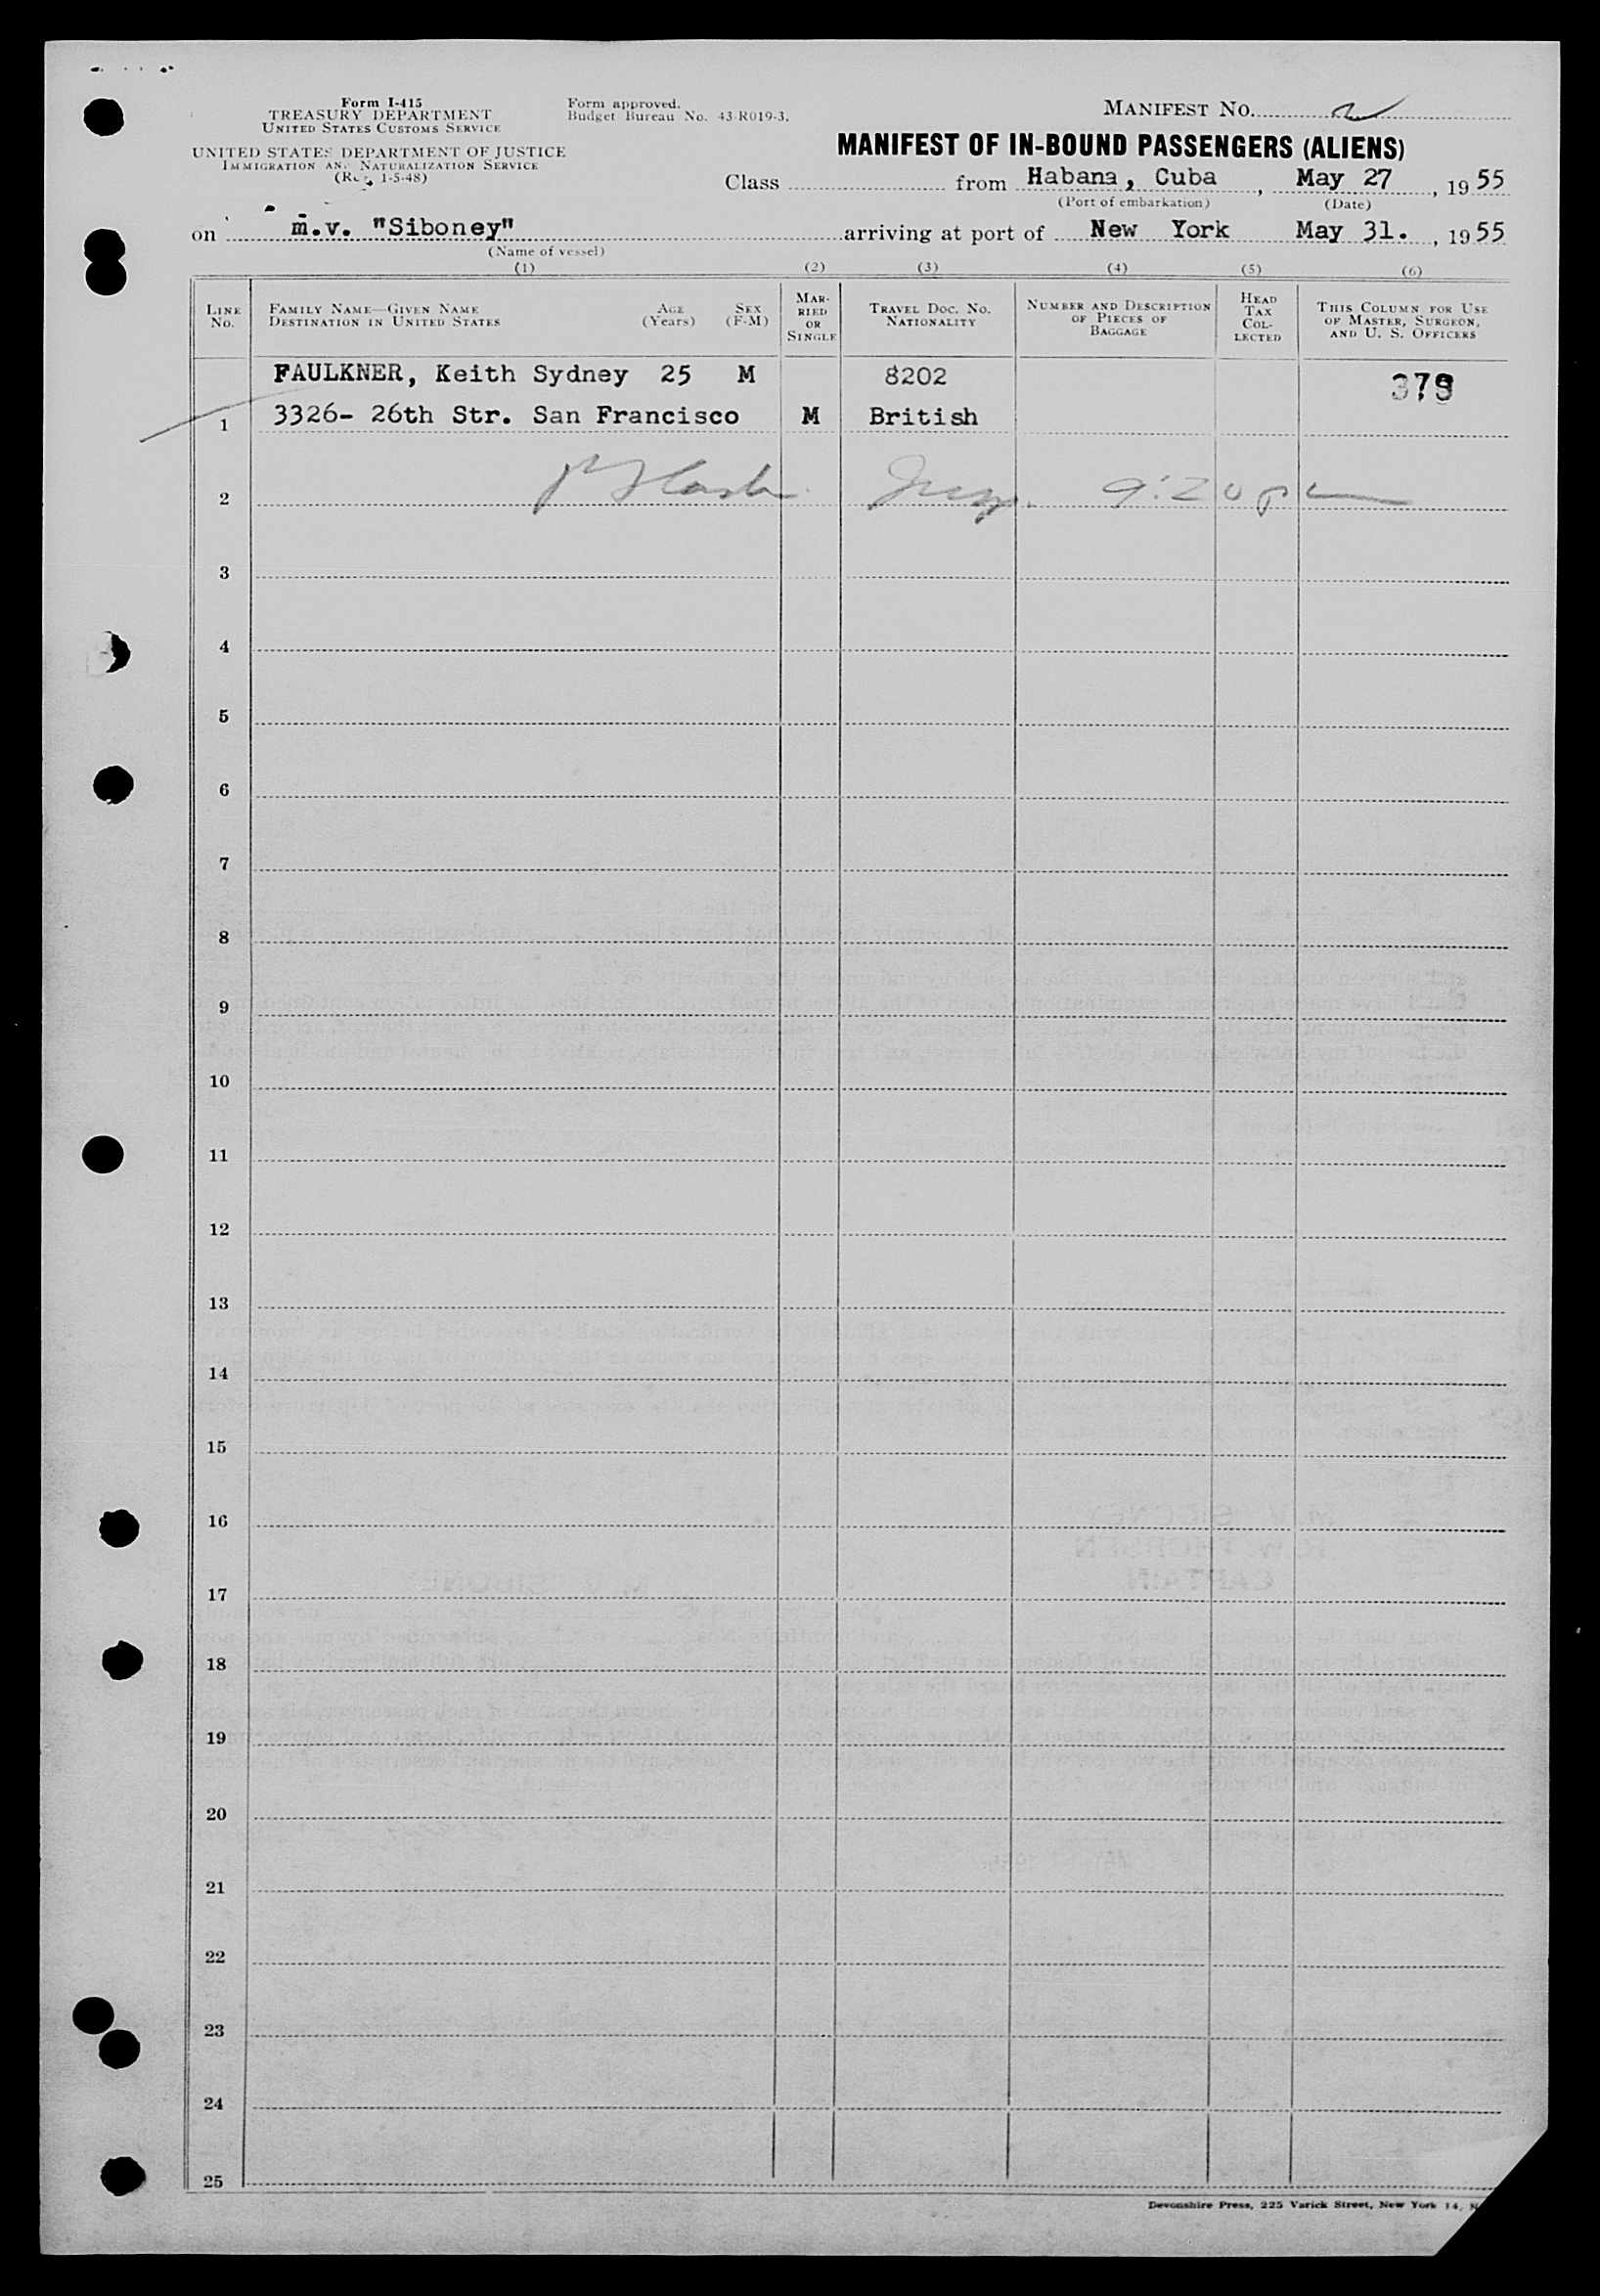 Form I-415
TREASURY DEPARTMENT
UNITED STATES CUSTOMS SERVICE
UNITED STATES DEPARTMENT OF JUSTICE
IMMIGRATION AND NATURALIZATION SERVICE
(Rev. 1-5-48)
Form approved.
Budget Bureau No. 43-R019-3.
MANIFEST NO.
MANIFEST OF IN-BOUND PASSENGERS (ALIENS)
Class from Habana, Cuba, May 27, 1955
(Port of embarkation) (Date)
on m.v. "Siboney" arriving at port of New York May 31., 1955
(Name of vessel)
(1) (2) (3) (4) (5) (6)
LINE NO.
FAMILY NAME—GIVEN NAME
DESTINATION IN UNITED STATES
AGE (Years)
SEX (F-M)
MARRIED OR SINGLE
TRAVEL DOC. NO.
NATIONALITY
NUMBER AND DESCRIPTION OF PIECES OF BAGGAGE
HEAD TAX COLLECTED
THIS COLUMN FOR USE OF MASTER, SURGEON, AND U. S. OFFICERS
FAULKNER, Keith Sydney 25 M 8202
1 3326- 26th Str. San Francisco M British
2 9:20 pm
3
4
5
6
7
8
9
10
11
12
13
14
15
16
17
18
19
20
21
22
23
24
25
Devonshire Press, 225 Varick Street, New York 14,